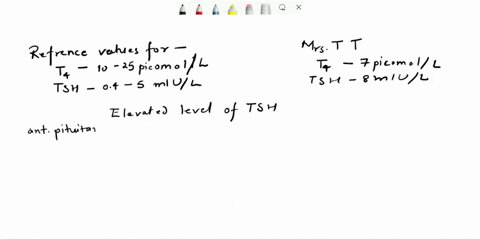 Refrence values for —
T4 — 10 - 25 picomol/L
TSH — 0.4 - 5 mIU/L
Mrs. T T
T4 — 7 picomol/L
TSH — 8 mIU/L
Elevated level of TSH
ant. pituitar